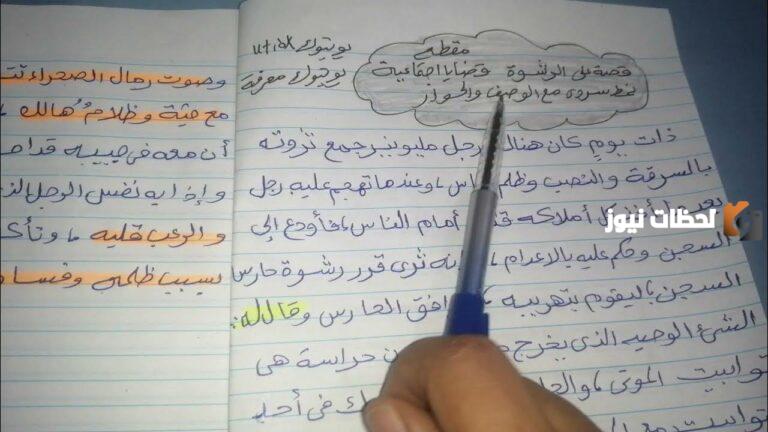 مقطع
قصة على الرشوة قضايا اجتماعية
نمط سردي مع الوصف والحوار
يوتيوك utibk
يوتيوك معرفة
ذات يوم كان هناك رجل مليونير جمع ثروته
بالسرقة والنصب وظلم الناس، وعندما تهجم عليه رجل
أملاكه أمام الناس، فأودع إلى
السجن وحكم عليه بالاعدام، ثرى قرر رشوة حارس
السجن باليقوم بتهريبه، وافق الحارس وقال له:
الشئ الوحيد الذي يخرج من حراسة هي
توابيت الموتى، في أحد
وصوت رمال الصحراء
مع جثة وظلام هالك،
أن معه في جيبه
وإذا به نفس الرجل
والرعب قلبه، وتأك
بسبب ظلمه
لحظات نيوز